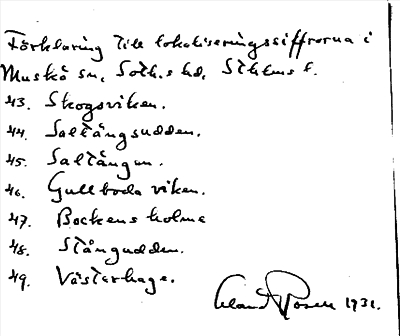 Förklaring till lokaliseringssiffrorna i
Muskö sn, Soth.s hd, Sthlms l.
43. Skogsviken.
44. Saltängsudden.
45. Saltängen.
46. Gullboda viken.
47. Bockens holme
48. Stångudden.
49. Västerhage.
1931.